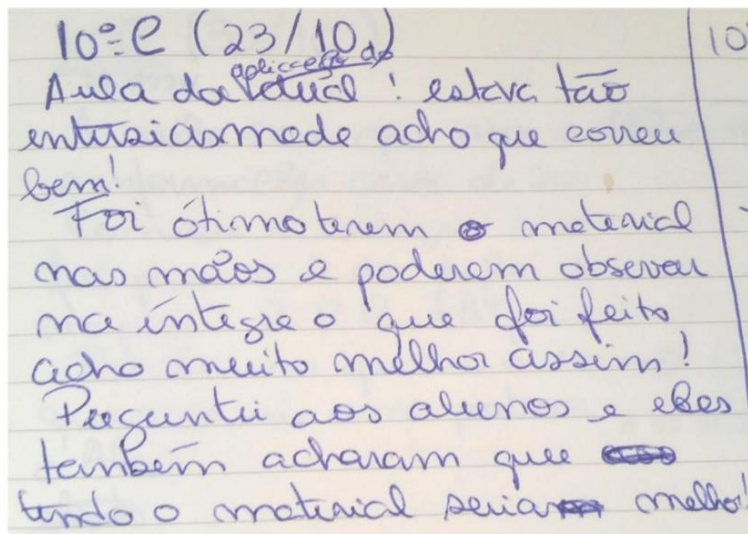 10º C (23/10)
aplicação do
Aula da dual! estava tão
entusiasmade acho que correu
bem!
Foi ótimo terem o material
nas mãos e poderem observar
na íntegra o que foi feito
acho muito melhor assim!
Perguntei aos alunos e eles
também acharam que
tendo o material seria melhor!
10